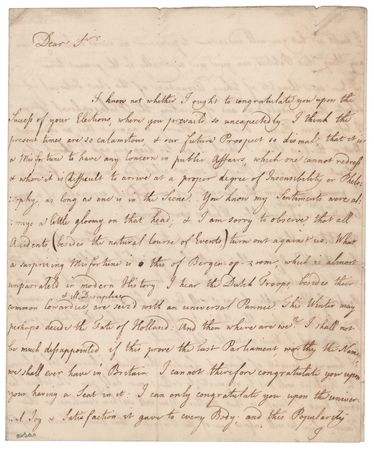 Dear Sir
I know not whether I ought to congratulate you upon the
Success of your Elections, where you prevail'd so unexpectedly. I think the
present times are so calamitous, & our future Prospect so dismal, that it is
a Misfortune to have any Concern in public Affairs, which one cannot redress
& where it is difficult to arrive at a proper degree of Insensibility or Philo:
:sophy, as long as one is in the Scene. You know my Sentiments were al:
:ways a little gloomy on that head, & I am sorry to observe that all
Accidents (besides the natural Course of Events) turn out against us. What
a surprizing Misfortune is this of Bergen op zoom, which is almost
unparalel'd in modern History. I hear the Dutch Troops, besides their
& Ill-Discipline
common Cowardice are seiz'd with an universal Pannic. This Winter may
perhaps decide the Fate of Holland: And then where are we? I shall not
be much disappointed if this prove the last Parliament worthy the Name,
we shall ever have in Britain. I cannot therefore congratulate you upon
your having a Seat in it: I can only congratulate you upon the univer
:sal Joy & Satisfaction it gave to every Body and this Popularity